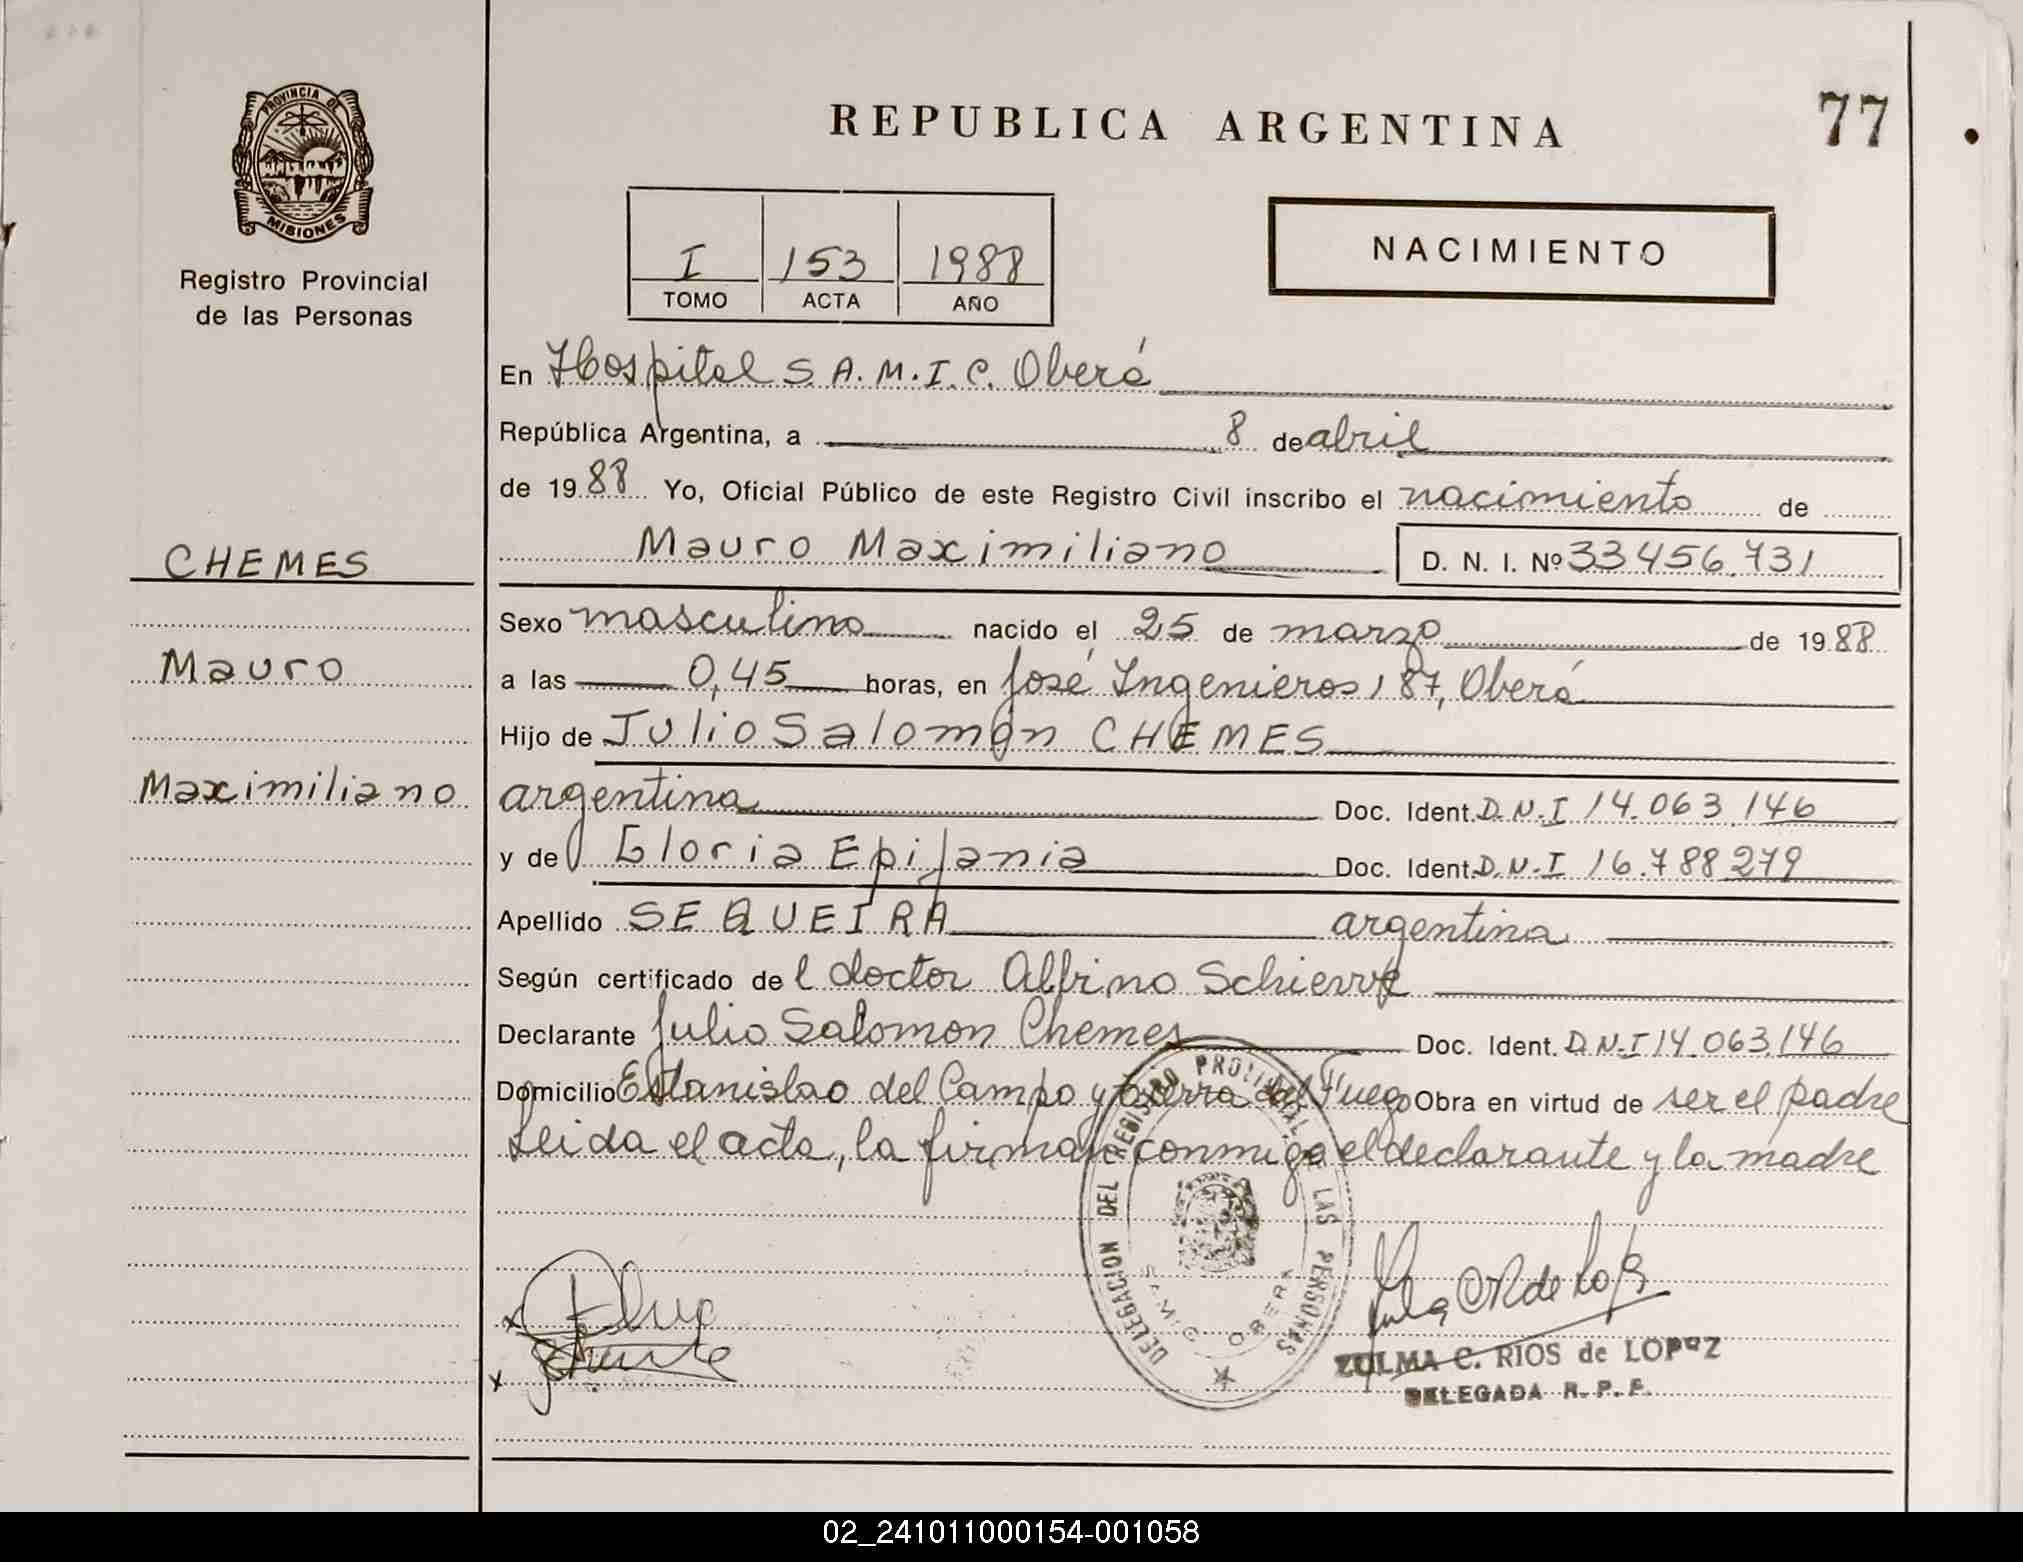 PROVINCIA DE
MISIONES
Registro Provincial
de las Personas
CHEMES
Mauro
Maximiliano
REPUBLICA ARGENTINA
77
I 153 1988
TOMO ACTA AÑO
NACIMIENTO
En Hospital S.A.M.I.C. Oberá
República Argentina, a 8 de abril
de 1988 Yo, Oficial Público de este Registro Civil inscribo el nacimiento de
Mauro Maximiliano D. N. I. Nº 33456.731
Sexo masculino nacido el 25 de marzo de 1988
a las 0,45 horas, en José Ingenieros 187, Oberá
Hijo de Julio Salomón CHEMES
argentina Doc. Ident. D.N.I 14.063.146
y de Gloria Epifania Doc. Ident. D.N.I 16.788.279
Apellido SEQUEIRA argentina
Según certificado del doctor Albino
Declarante Julio Salomon Chemes Doc. Ident. D.N.I 14.063.146
Domicilio Estanislao del Campo y tierra del Fuego Obra en virtud de ser el padre
Leida el acta, la firman conmigo el declarante y la madre
DELEGACION DEL REGISTRO PROVINCIAL LAS PERSONAS
S.A.M.I.C. OBERA
ZULMA C. RIOS de LOPEZ
DELEGADA R. P. P.
02_241011000154-001058